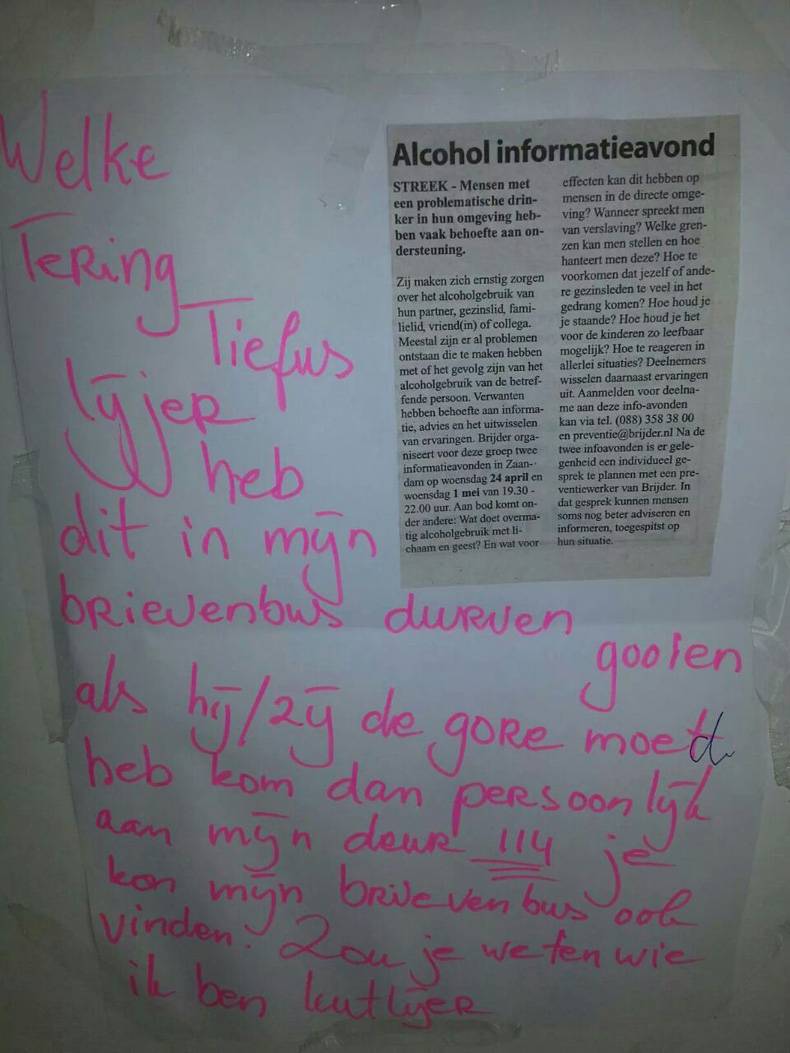 Welke
Tering
Tiefus
lijer
heb
dit in mijn
brievenbus durven
gooien
als hij/zij de gore moed
heb kom dan persoonlijk
aan mijn deur 114 je
kon mijn brievenbus ook
vinden. Zou je weten wie
ik ben kutlijer
Alcohol informatieavond
STREEK - Mensen met
een problematische drin-
ker in hun omgeving heb-
ben vaak behoefte aan on-
dersteuning.
Zij maken zich ernstig zorgen
over het alcoholgebruik van
hun partner, gezinslid, fami-
lielid, vriend(in) of collega.
Meestal zijn er al problemen
ontstaan die te maken hebben
met of het gevolg zijn van het
alcoholgebruik van de betref-
fende persoon. Verwanten
hebben behoefte aan informa-
tie, advies en het uitwisselen
van ervaringen. Brijder orga-
niseert voor deze groep twee
informatieavonden in Zaan-
dam op woensdag 24 april en
woensdag 1 mei van 19.30 -
22.00 uur. Aan bod komt on-
der andere: Wat doet overma-
tig alcoholgebruik met li-
chaam en geest? En wat voor
effecten kan dit hebben op
mensen in de directe omge-
ving? Wanneer spreekt men
van verslaving? Welke gren-
zen kan men stellen en hoe
hanteert men deze? Hoe te
voorkomen dat jezelf of ande-
re gezinsleden te veel in het
gedrang komen? Hoe houd je
je staande? Hoe houd je het
voor de kinderen zo leefbaar
mogelijk? Hoe te reageren in
allerlei situaties? Deelnemers
wisselen daarnaast ervaringen
uit. Aanmelden voor deelna-
me aan deze info-avonden
kan via tel. (088) 358 38 00
en preventie@brijder.nl Na de
twee infoavonden is er gele-
genheid een individueel ge-
sprek te plannen met een pre-
ventiewerker van Brijder. In
dat gesprek kunnen mensen
soms nog beter adviseren en
informeren, toegespitst op
hun situatie.